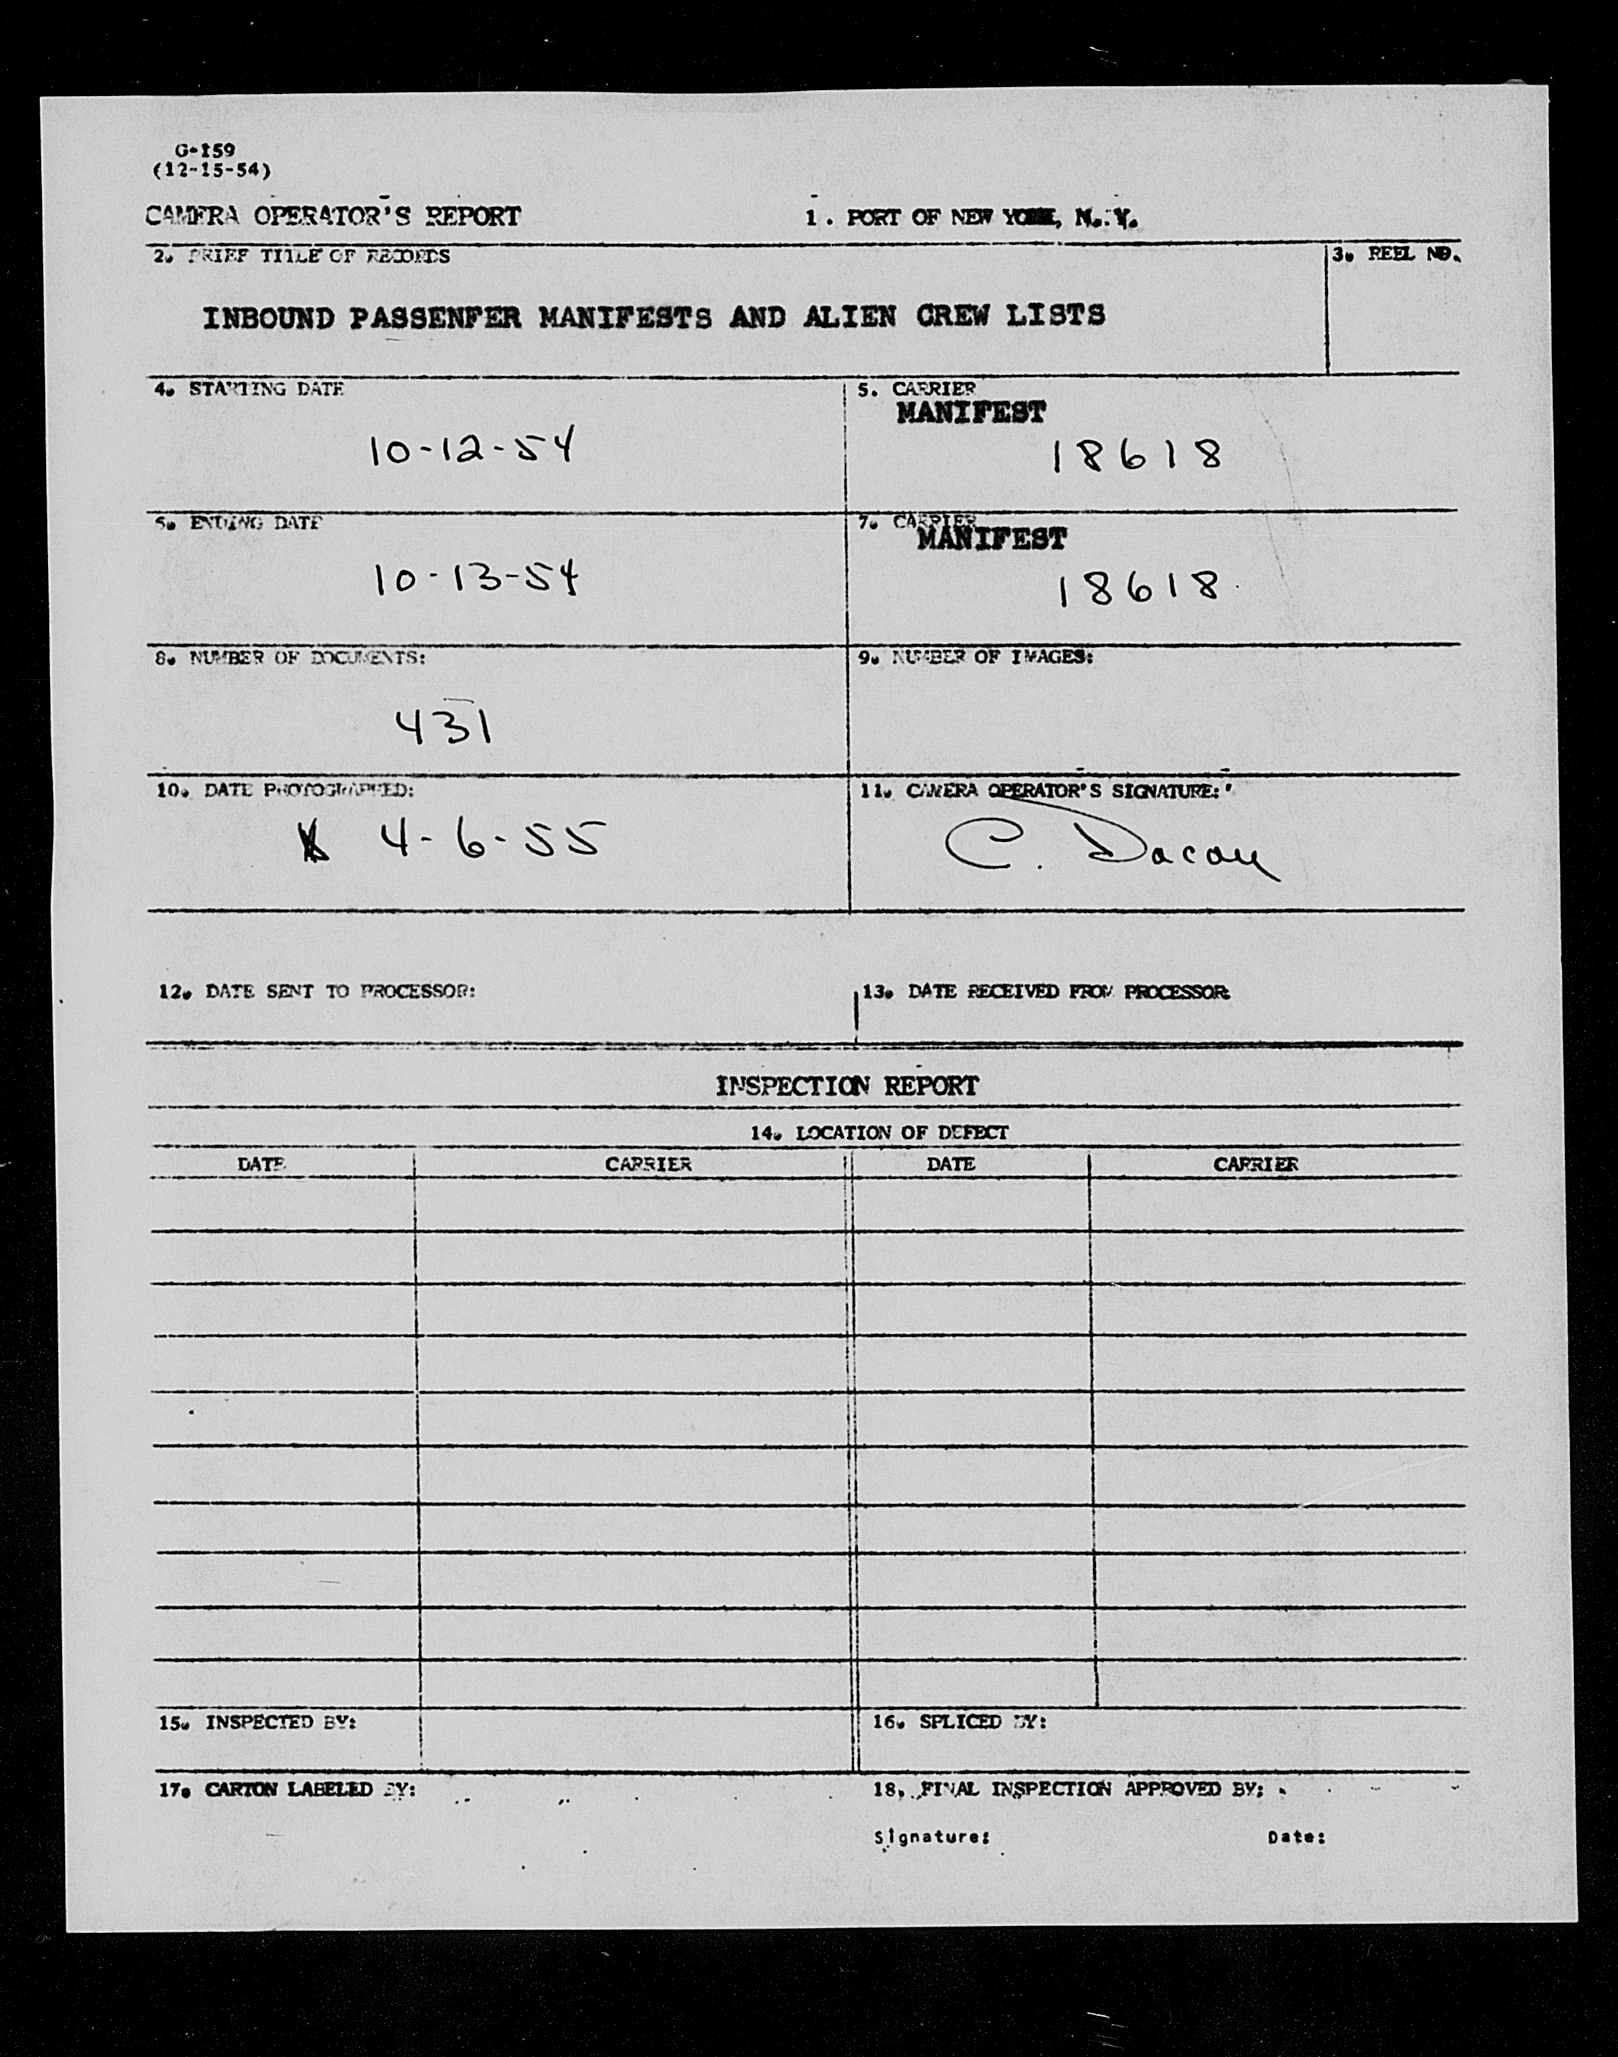 G-159
(12-15-54)
CAMERA OPERATOR'S REPORT
1. PORT OF NEW YORK, N. Y.
2. BRIEF TITLE OF RECORDS
3. REEL NO.
INBOUND PASSENFER MANIFESTS AND ALIEN CREW LISTS
4. STARTING DATE
10-12-54
5. CARRIER
MANIFEST
18618
6. ENDING DATE
10-13-54
7. CARRIER
MANIFEST
18618
8. NUMBER OF DOCUMENTS:
431
9. NUMBER OF IMAGES:
10. DATE PHOTOGRAPHED:
4-6-55
11. CAMERA OPERATOR'S SIGNATURE:
C.
12. DATE SENT TO PROCESSOR:
13. DATE RECEIVED FROM PROCESSOR
INSPECTION REPORT
14. LOCATION OF DEFECT
DATE CARRIER DATE CARRIER
15. INSPECTED BY:
16. SPLICED BY:
17. CARTON LABELED BY:
18. FINAL INSPECTION APPROVED BY:
Signature: Date: